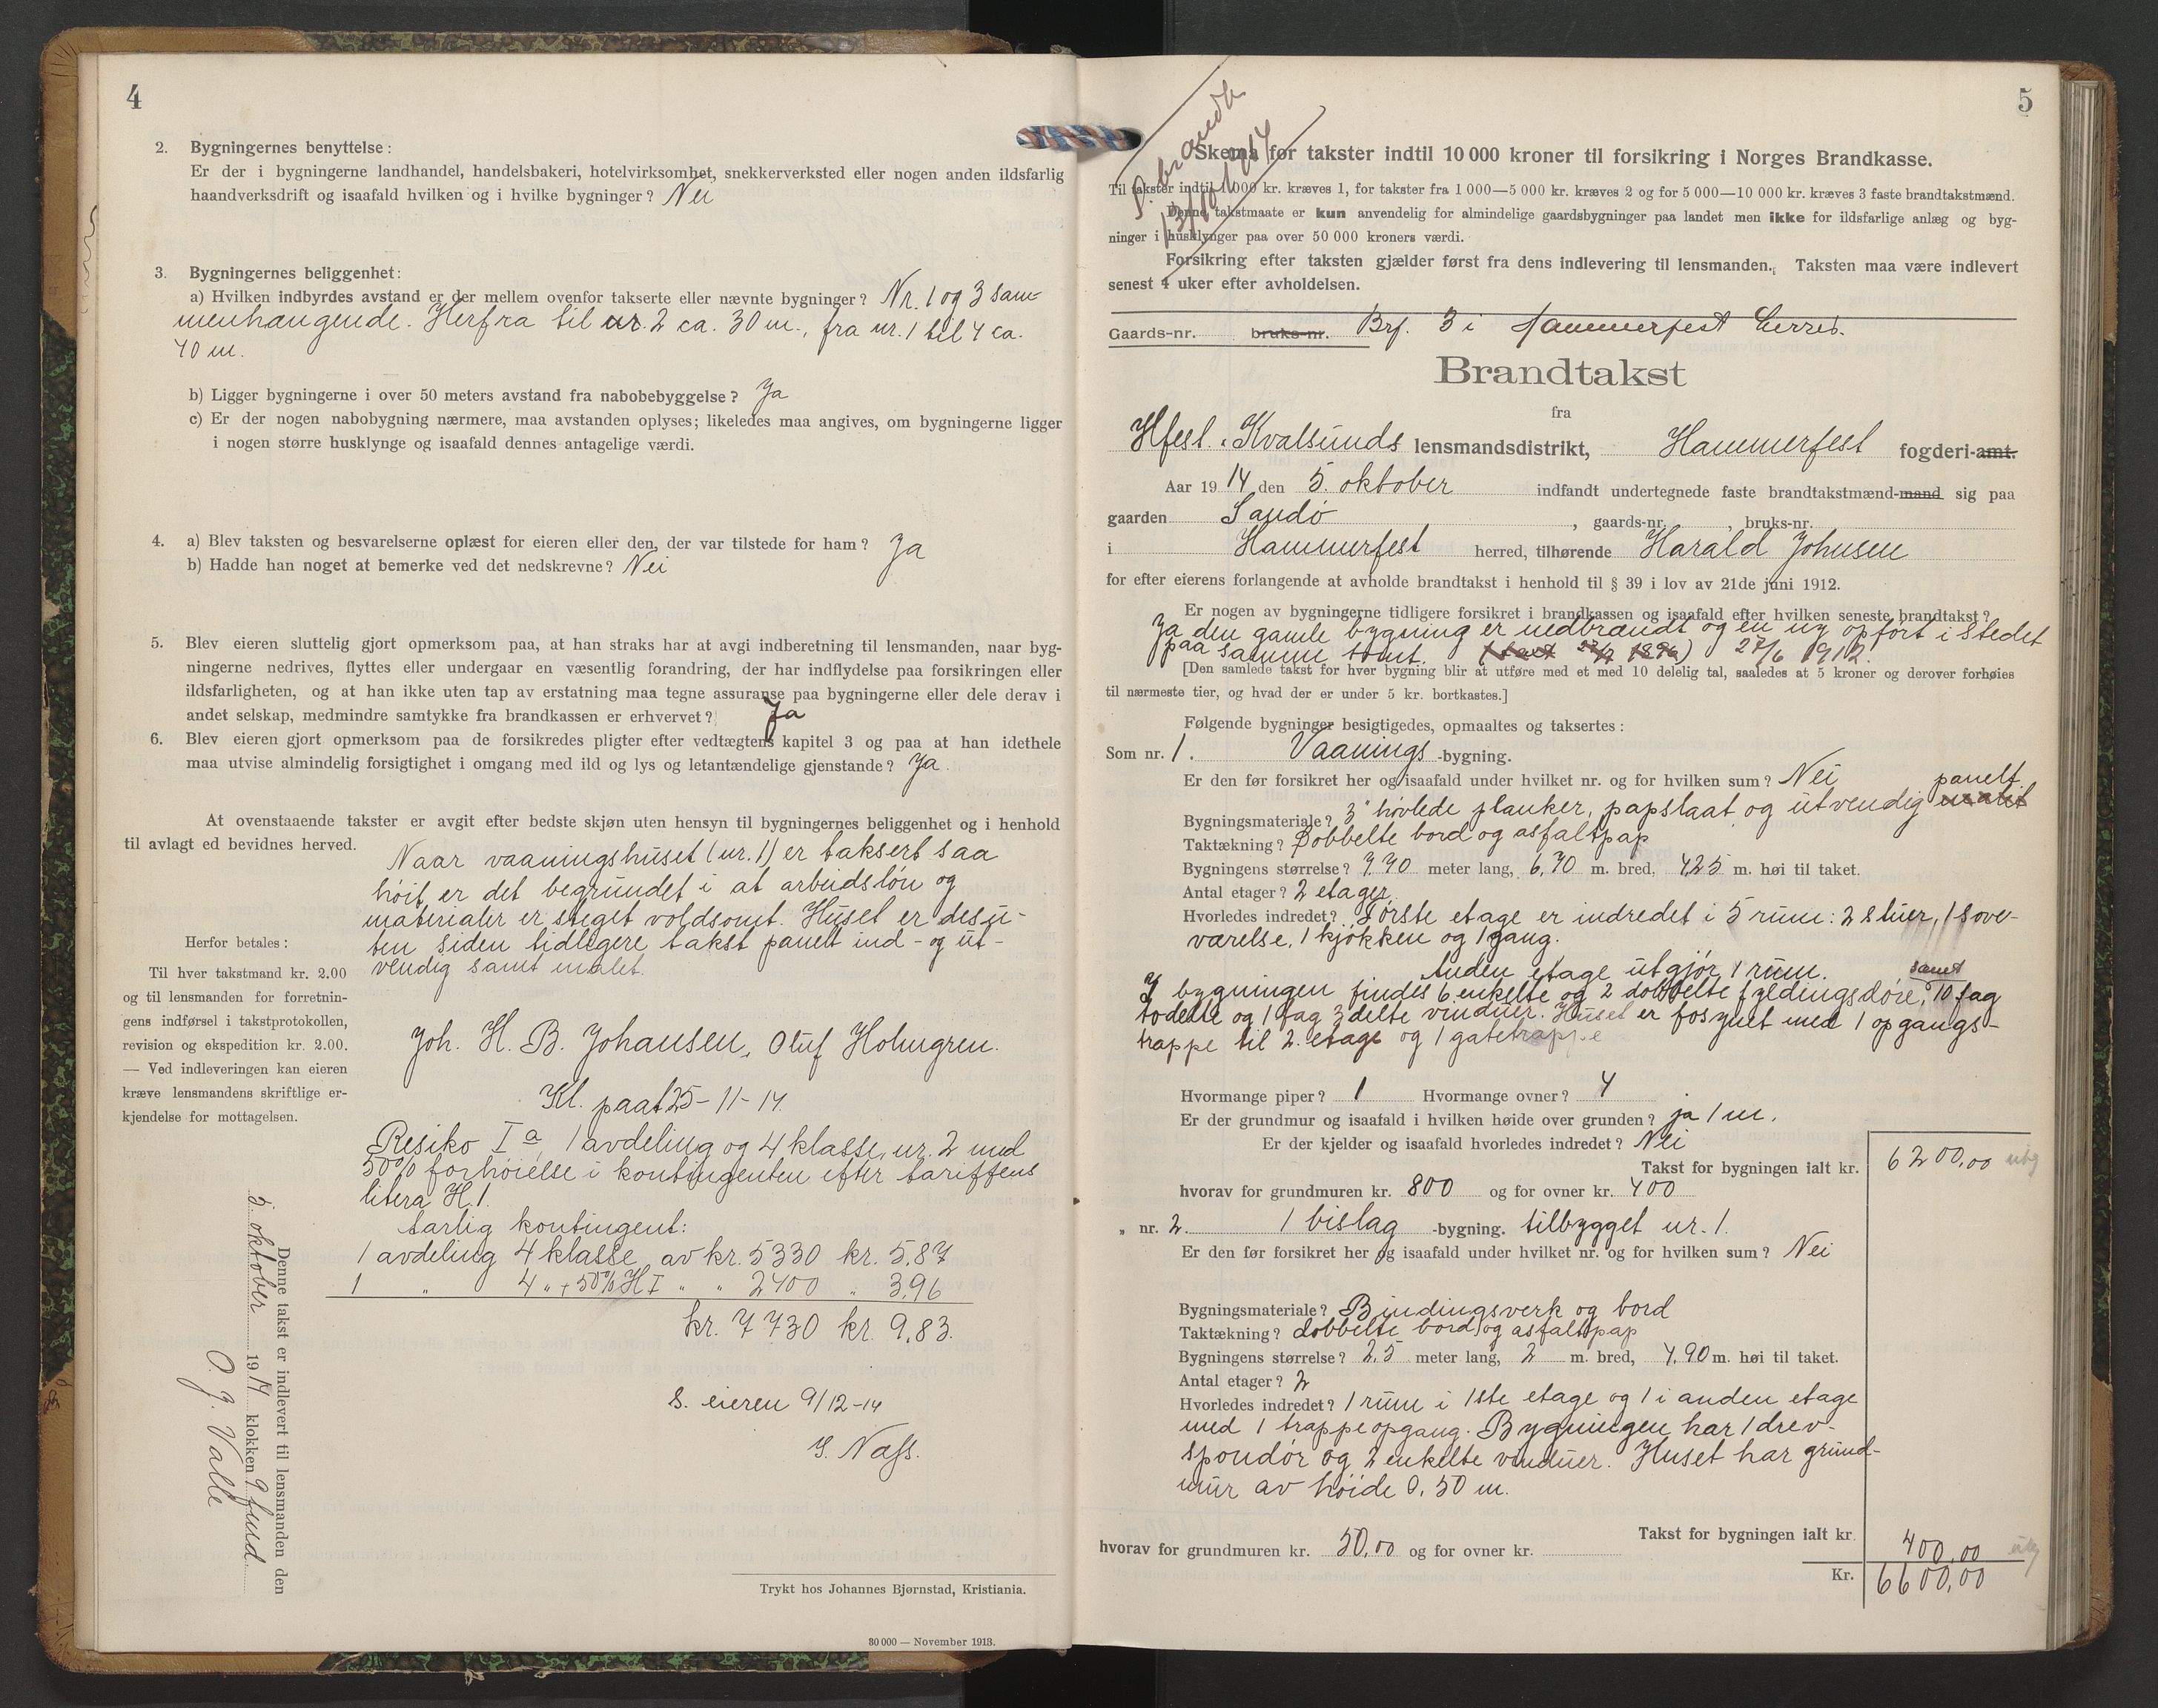 4
2. Bygningernes benyttelse:
Er der i bygningerne landhandel, handelsbakeri, hotelvirksomhet, snekkerverksted eller nogen anden ildsfarlig
haandverksdrift og isaafald hvilken og i hvilke bygninger? Nei
3. Bygningernes beliggenhet:
a) Hvilken indbyrdes avstand er der mellem ovenfor takserte eller nævnte bygninger? Nr. 1 og 3 sam-
menhængende. Herfra til nr. 2 ca. 30 m., fra nr. 1 til 4 ca.
40 m.
b) Ligger bygningerne i over 50 meters avstand fra nabobebyggelse? Ja
c) Er der nogen nabobygning nærmere, maa avstanden oplyses; likeledes maa angives, om bygningerne ligger
i nogen større husklynge og isaafald dennes antagelige værdi.
4. a) Blev taksten og besvarelserne oplæst for eieren eller den, der var tilstede for ham? Ja
b) Hadde han noget at bemerke ved det nedskrevne? Nei
5. Blev eieren sluttelig gjort opmerksom paa, at han straks har at avgi indberetning til lensmanden, naar byg-
ningerne nedrives, flyttes eller undergaar en væsentlig forandring, der har indflydelse paa forsikringen eller
ildsfarligheten, og at han ikke uten tap av erstatning maa tegne assuranse paa bygningerne eller dele derav i
andet selskap, medmindre samtykke fra brandkassen er erhvervet? Ja
6. Blev eieren gjort opmerksom paa de forsikredes pligter efter vedtægtens kapitel 3 og paa at han idethele
maa utvise almindelig forsigtighet i omgang med ild og lys og letantændelige gjenstande? Ja
At ovenstaaende takster er avgit efter bedste skjøn uten hensyn til bygningernes beliggenhet og i henhold
til avlagt ed bevidnes herved.
Naar vaaningshuset (nr. 1) er taksert saa
höit, er det begrundet i at arbeidslön og
materialer er steget voldsomt. Huset er desu-
ten siden tidligere takst panelt ind- og ut-
vendig samt malet.
Herfor betales:
Til hver takstmand kr. 2.00
og til lensmanden for forretnin-
gens indførsel i takstprotokollen,
revision og ekspedition kr. 2.00.
— Ved indleveringen kan eieren
kræve lensmandens skriftlige er-
kjendelse for mottagelsen.
Joh. H. B. Johansen, Oluf Holmgren.
Kl. paat 25-11-14.
Resiko I a, 1 avdeling og 4 klasse, nr. 2 med
50% forhöielse i kontingenten efter tariffens
litera H.1.
Aarlig kontingent:
1 avdeling 4 klasse av kr. 5330 kr. 5,87
1 " 4 " + 50% H I " " 2400 " 3,96
kr. 7730 kr. 9,83.
S. eieren 9/12-14
Denne takst er indlevert til lensmanden den
5. oktober 1914 klokken 9 fmd.
O. J. Valle
Trykt hos Johannes Bjørnstad, Kristiania.
30 000 — November 1913.
5
Skema for takster indtil 10 000 kroner til forsikring i Norges Brandkasse.
Til takster indtil 1000 kr. kræves 1, for takster fra 1 000—5 000 kr. kræves 2 og for 5 000—10 000 kr. kræves 3 faste brandtakstmænd.
Denne takstmaate er kun anvendelig for almindelige gaardsbygninger paa landet men ikke for ildsfarlige anlæg og byg-
ninger i husklynger paa over 50 000 kroners værdi.
Forsikring efter taksten gjælder først fra dens indlevering til lensmanden. Taksten maa være indlevert
senest 4 uker efter avholdelsen.
Gaards-nr. bruks-nr. Brf. 3 i Hammerfest
Brandtakst
fra
Hfest. Kvalsunds lensmandsdistrikt, Hammerfest fogderi-amt.
Aar 1914 den 5. oktober indfandt undertegnede faste brandtakstmænd-mand sig paa
gaarden Sandö, gaards-nr. , bruks-nr.
i Hammerfest herred, tilhørende Harald Johnsen
for efter eierens forlangende at avholde brandtakst i henhold til § 39 i lov av 21de juni 1912.
Er nogen av bygningerne tidligere forsikret i brandkassen og isaafald efter hvilken seneste brandtakst?
Ja den gamle bygning er nedbrændt og en ny opfört i stedet
paa samme tomt. 27/6 1912.
[Den samlede takst for hver bygning blir at utføre med et med 10 delelig tal, saaledes at 5 kroner og derover forhøies
til nærmeste tier, og hvad der er under 5 kr. bortkastes.]
Følgende bygninger besigtigedes, opmaaltes og taksertes:
Som nr. 1. Vaanings-bygning.
Er den før forsikret her og isaafald under hvilket nr. og for hvilken sum? Nei
Bygningsmateriale? 3" hövlede planker, papslaat og utvendig malit panelt
Taktækning? Dobbelte bord og asfaltpap
Bygningens størrelse? 9,90 meter lang, 6,70 m. bred, 4,25 m. høi til taket.
Antal etager? 2 etager
Hvorledes indredet? Første etage er indredet i 5 rum: 2 stuer, 1 sove-
værelse, 1 kjökken og 1 gang.
Anden etage utgjör 1 rum.
I bygningen findes 6 enkelte og 2 dobbelte fyldingsdöre, samt 10 fag
todelte og 1 fag 3 delte vinduer. Huset er forsynet med 1 opgangs-
trappe til 2. etage og 1 gatetrappe
Hvormange piper? 1 Hvormange ovner? 4
Er der grundmur og isaafald i hvilken høide over grunden? ja 1 m.
Er der kjelder og isaafald hvorledes indredet? Nei
Takst for bygningen ialt kr. 6200,00
hvorav for grundmuren kr. 800 og for ovner kr. 400
" nr. 2. 1 bislag -bygning. tilbygget nr. 1.
Er den før forsikret her og isaafald under hvilket nr. og for hvilken sum? Nei
Bygningsmateriale? Bindingsverk og bord
Taktækning? dobbelte bord og asfaltpap
Bygningens størrelse? 2,5 meter lang, 2 m. bred, 4,90 m. høi til taket.
Antal etager? 2
Hvorledes indredet? 1 rum i 1ste etage og 1 i anden etage
med 1 trappeopgang. Bygningen har 1 drev-
spondör og 2 enkelte vinduer. Huset har grund-
mur av höide 0,50 m.
Takst for bygningen ialt kr. 400,00
hvorav for grundmuren kr. 50,00 og for ovner kr.
Kr. 6600,00